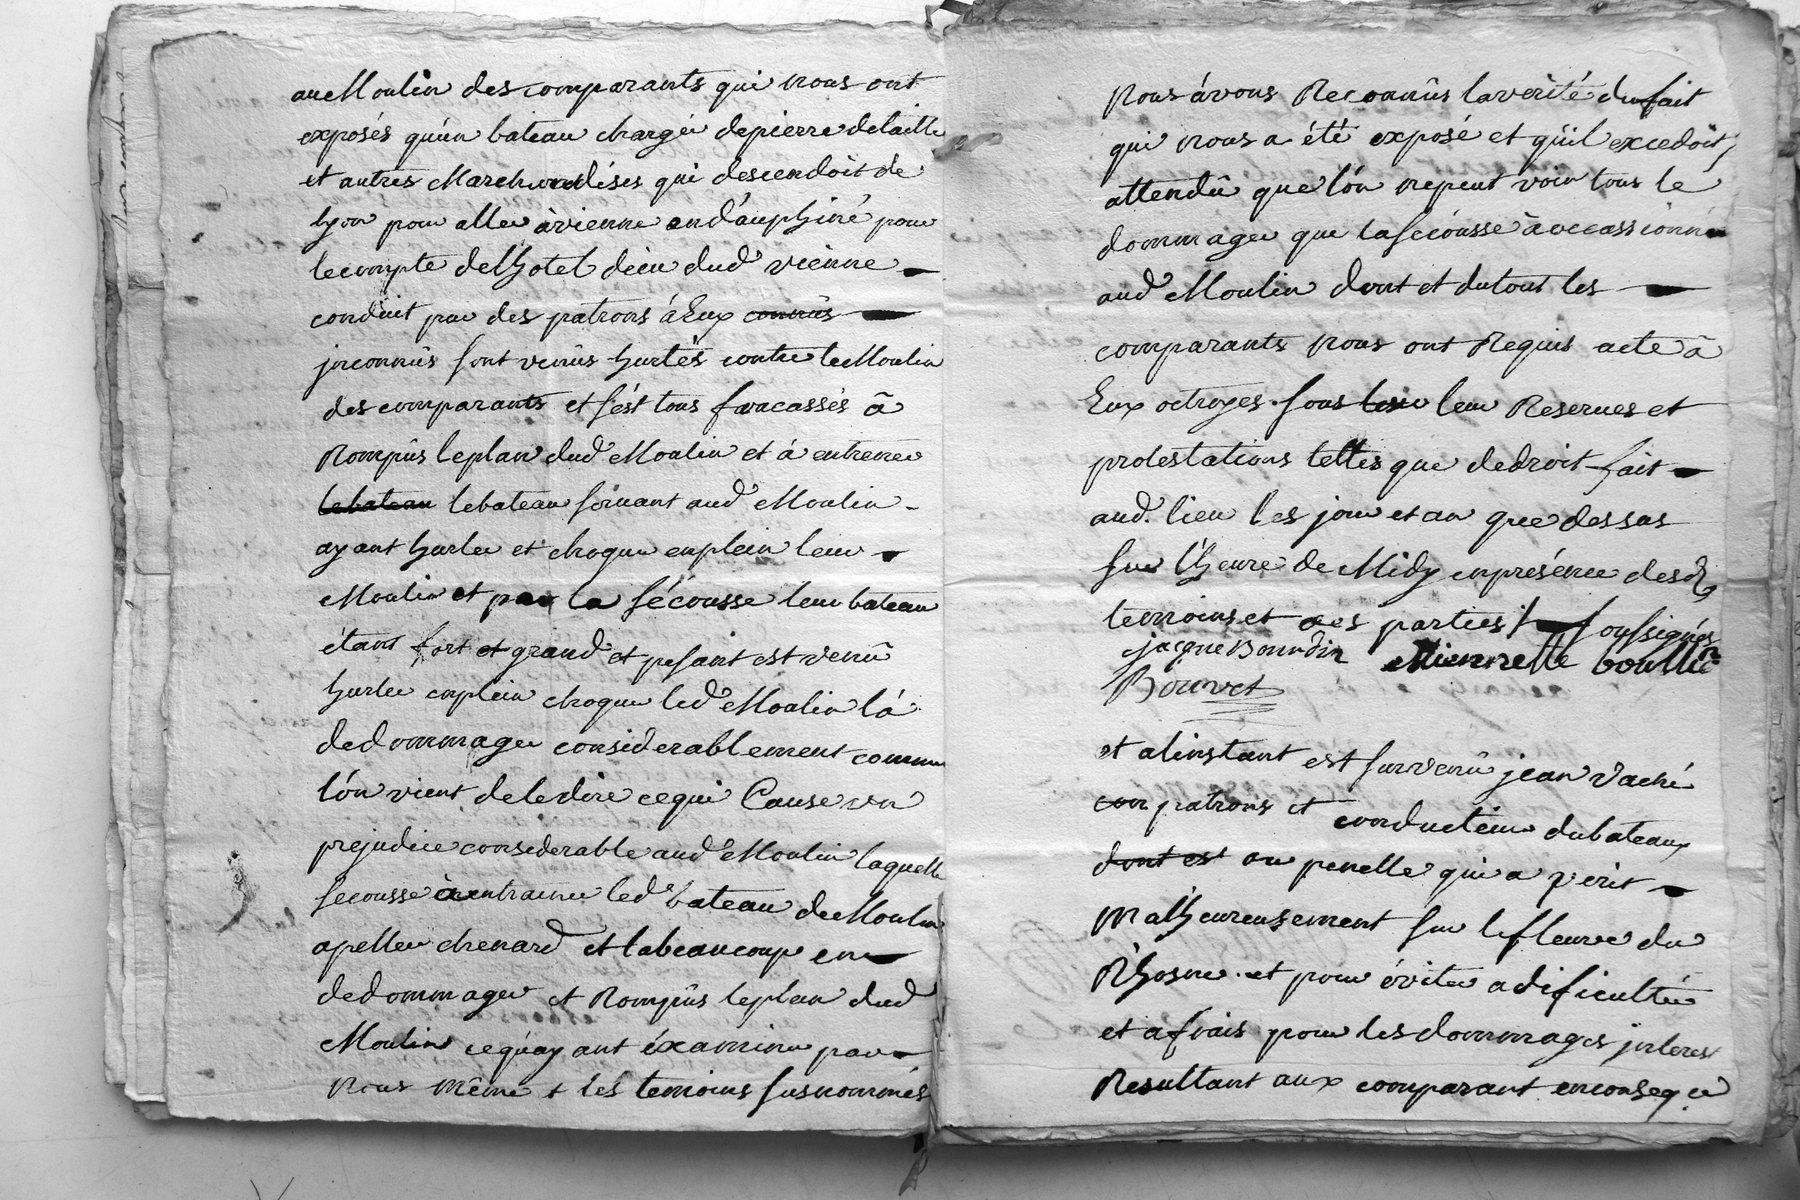 au Moulin des comparants qui nous ont
exposés qu'un bateau chargée depierre delaille
et autres Marchandises qui descendoit de
lyon pour aller àvienne endauphiné pour
lecompte delhotel dieu dud vienne
conduit par des patrons á Eux connûs
jnconnûs sont venûs hurtés contre le Moulin
des comparants et s'ést tous fracassés à
Rompûs leplan dud Moulin et à entrenée
lebateau lebateau soivant aud Moulin
ayant hurlée et choquée enplein leur
Moulin et par la sécousse leur bateau
étant fort et grand et pesant est venû
hurlee enplein choquee led Moulin lá
dedommagee considerablement comme
l'ón vient deledire cequi Cause un
prejudice considerable aud Moulin laquelle
secousse à entrainee led bateau de Moulin
apellee chenard et labeaucoup en
dedommagée et Rompûs leplan dud
Moulin cequ'ayant éxaminee par
nous même et les temoins susnommés
Nous ávons Reconnûs lavérité du fait
qui nous a été exposé et qu'il excedoit,
attendû que l'ón nepeut voir tous le
dommagee que la sécousse à occassionnée
aud Moulin dont et dutout les
comparants nous ont Requis acte à
Eux octroyés sous leur Reserves et
protestations telles que dedroit fait
aud. lieu les jour et an que dessus
sur l'heure de Midy enprésence desd
temoins et des parties soussignés
jacque Bourdin etiennette boullic
Bouvet
et alinstant est survenû jean vaché
patrons et conducteur dubateaux
dont est ou penelle qui a perit
malheureusement sur lefleuve du
Rhosne et pour évitée adificultée
et afrais pour les dommages jnteres
Resultant aux comparant enconseqce